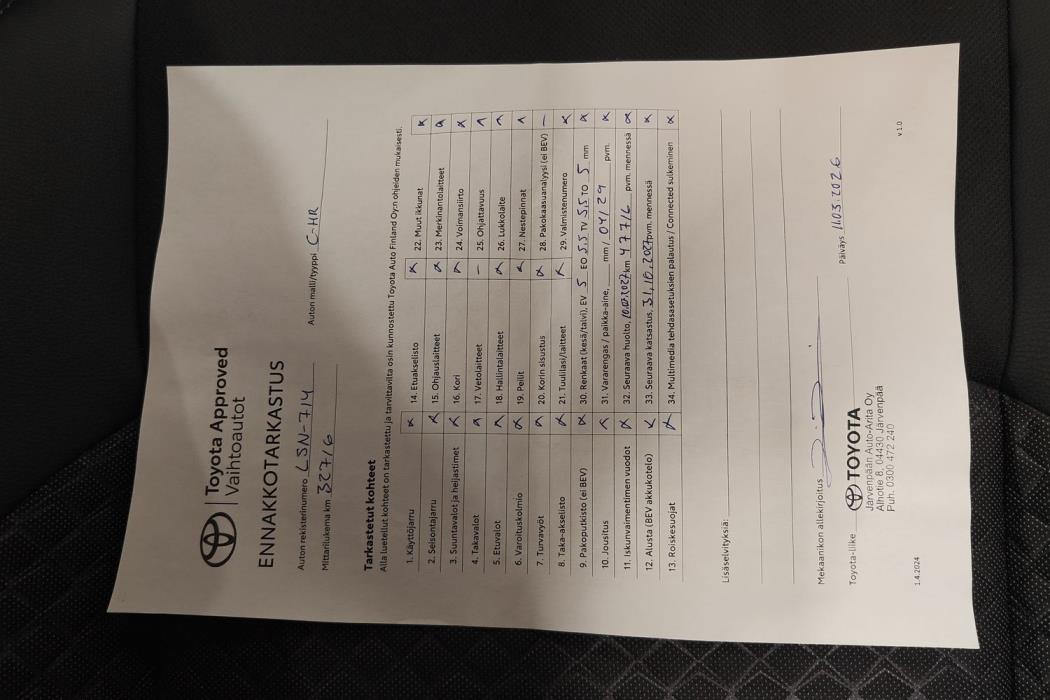 Toyota Approved
Vaihtoautot
ENNAKKOTARKASTUS
Auton rekisterinumero LSN-714 Auton malli/tyyppi C-HR
Mittarilukema km 32716
Tarkastetut kohteet
Alla luetellut kohteet on tarkastettu ja tarvittavilta osin kunnostettu Toyota Auto Finland Oy:n ohjeiden mukaisesti.
1. Käyttöjarru
2. Seisontajarru
3. Suuntavalot ja heijastimet
4. Takavalot
5. Etuvalot
6. Varoituskolmio
7. Turvavyöt
8. Taka-akselisto
9. Pakoputkisto (ei BEV)
10. Jousitus
11. Iskunvaimentimen vuodot
12. Alusta (BEV akkukotelo)
13. Roiskesuojat
14. Etuakselisto
15. Ohjauslaitteet
16. Kori
17. Vetolaitteet –
18. Hallintalaitteet
19. Peilit
20. Korin sisustus
21. Tuulilasi/laitteet
22. Muut ikkunat
23. Merkinantolaitteet
24. Voimansiirto
25. Ohjattavuus
26. Lukkolaite
27. Nestepinnat
28. Pakokaasuanalyysi (ei BEV) –
29. Valmistenumero
30. Renkaat (kesä/talvi), EV 5 EO 5,5 TV 5,5 TO 5 mm
31. Vararengas / paikka-aine, mm / 04/29 pvm.
32. Seuraava huolto, km 47716 pvm. mennessä
33. Seuraava katsastus, 31.10.2027 pvm. mennessä
34. Multimedia tehdasasetuksien palautus / Connected sulkeminen
Lisäselvityksiä:
Mekaanikon allekirjoitus
Päiväys 11.03.2026
Toyota-liike TOYOTA
Järvenpään Auto-Arita Oy
Alhotie 8, 04430 Järvenpää
Puh. 0300 472 240
1.4.2024 v 1.0